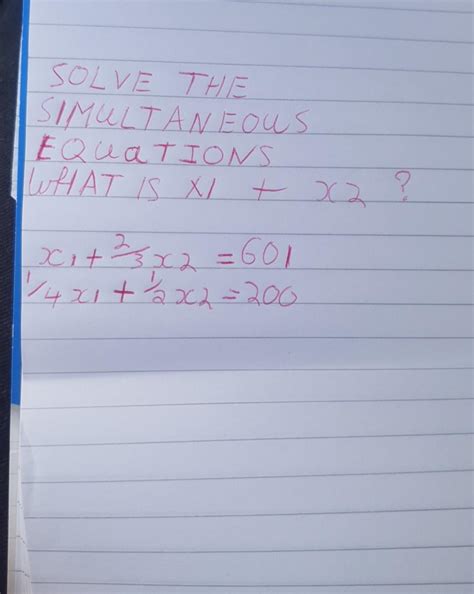 SOLVE THE
SIMULTANEOUS
EQUaTIONS
WHAT IS X1 + x2 ?
x1 + 2/3 x2 = 601
1/4 x1 + 1/2 x2 = 200